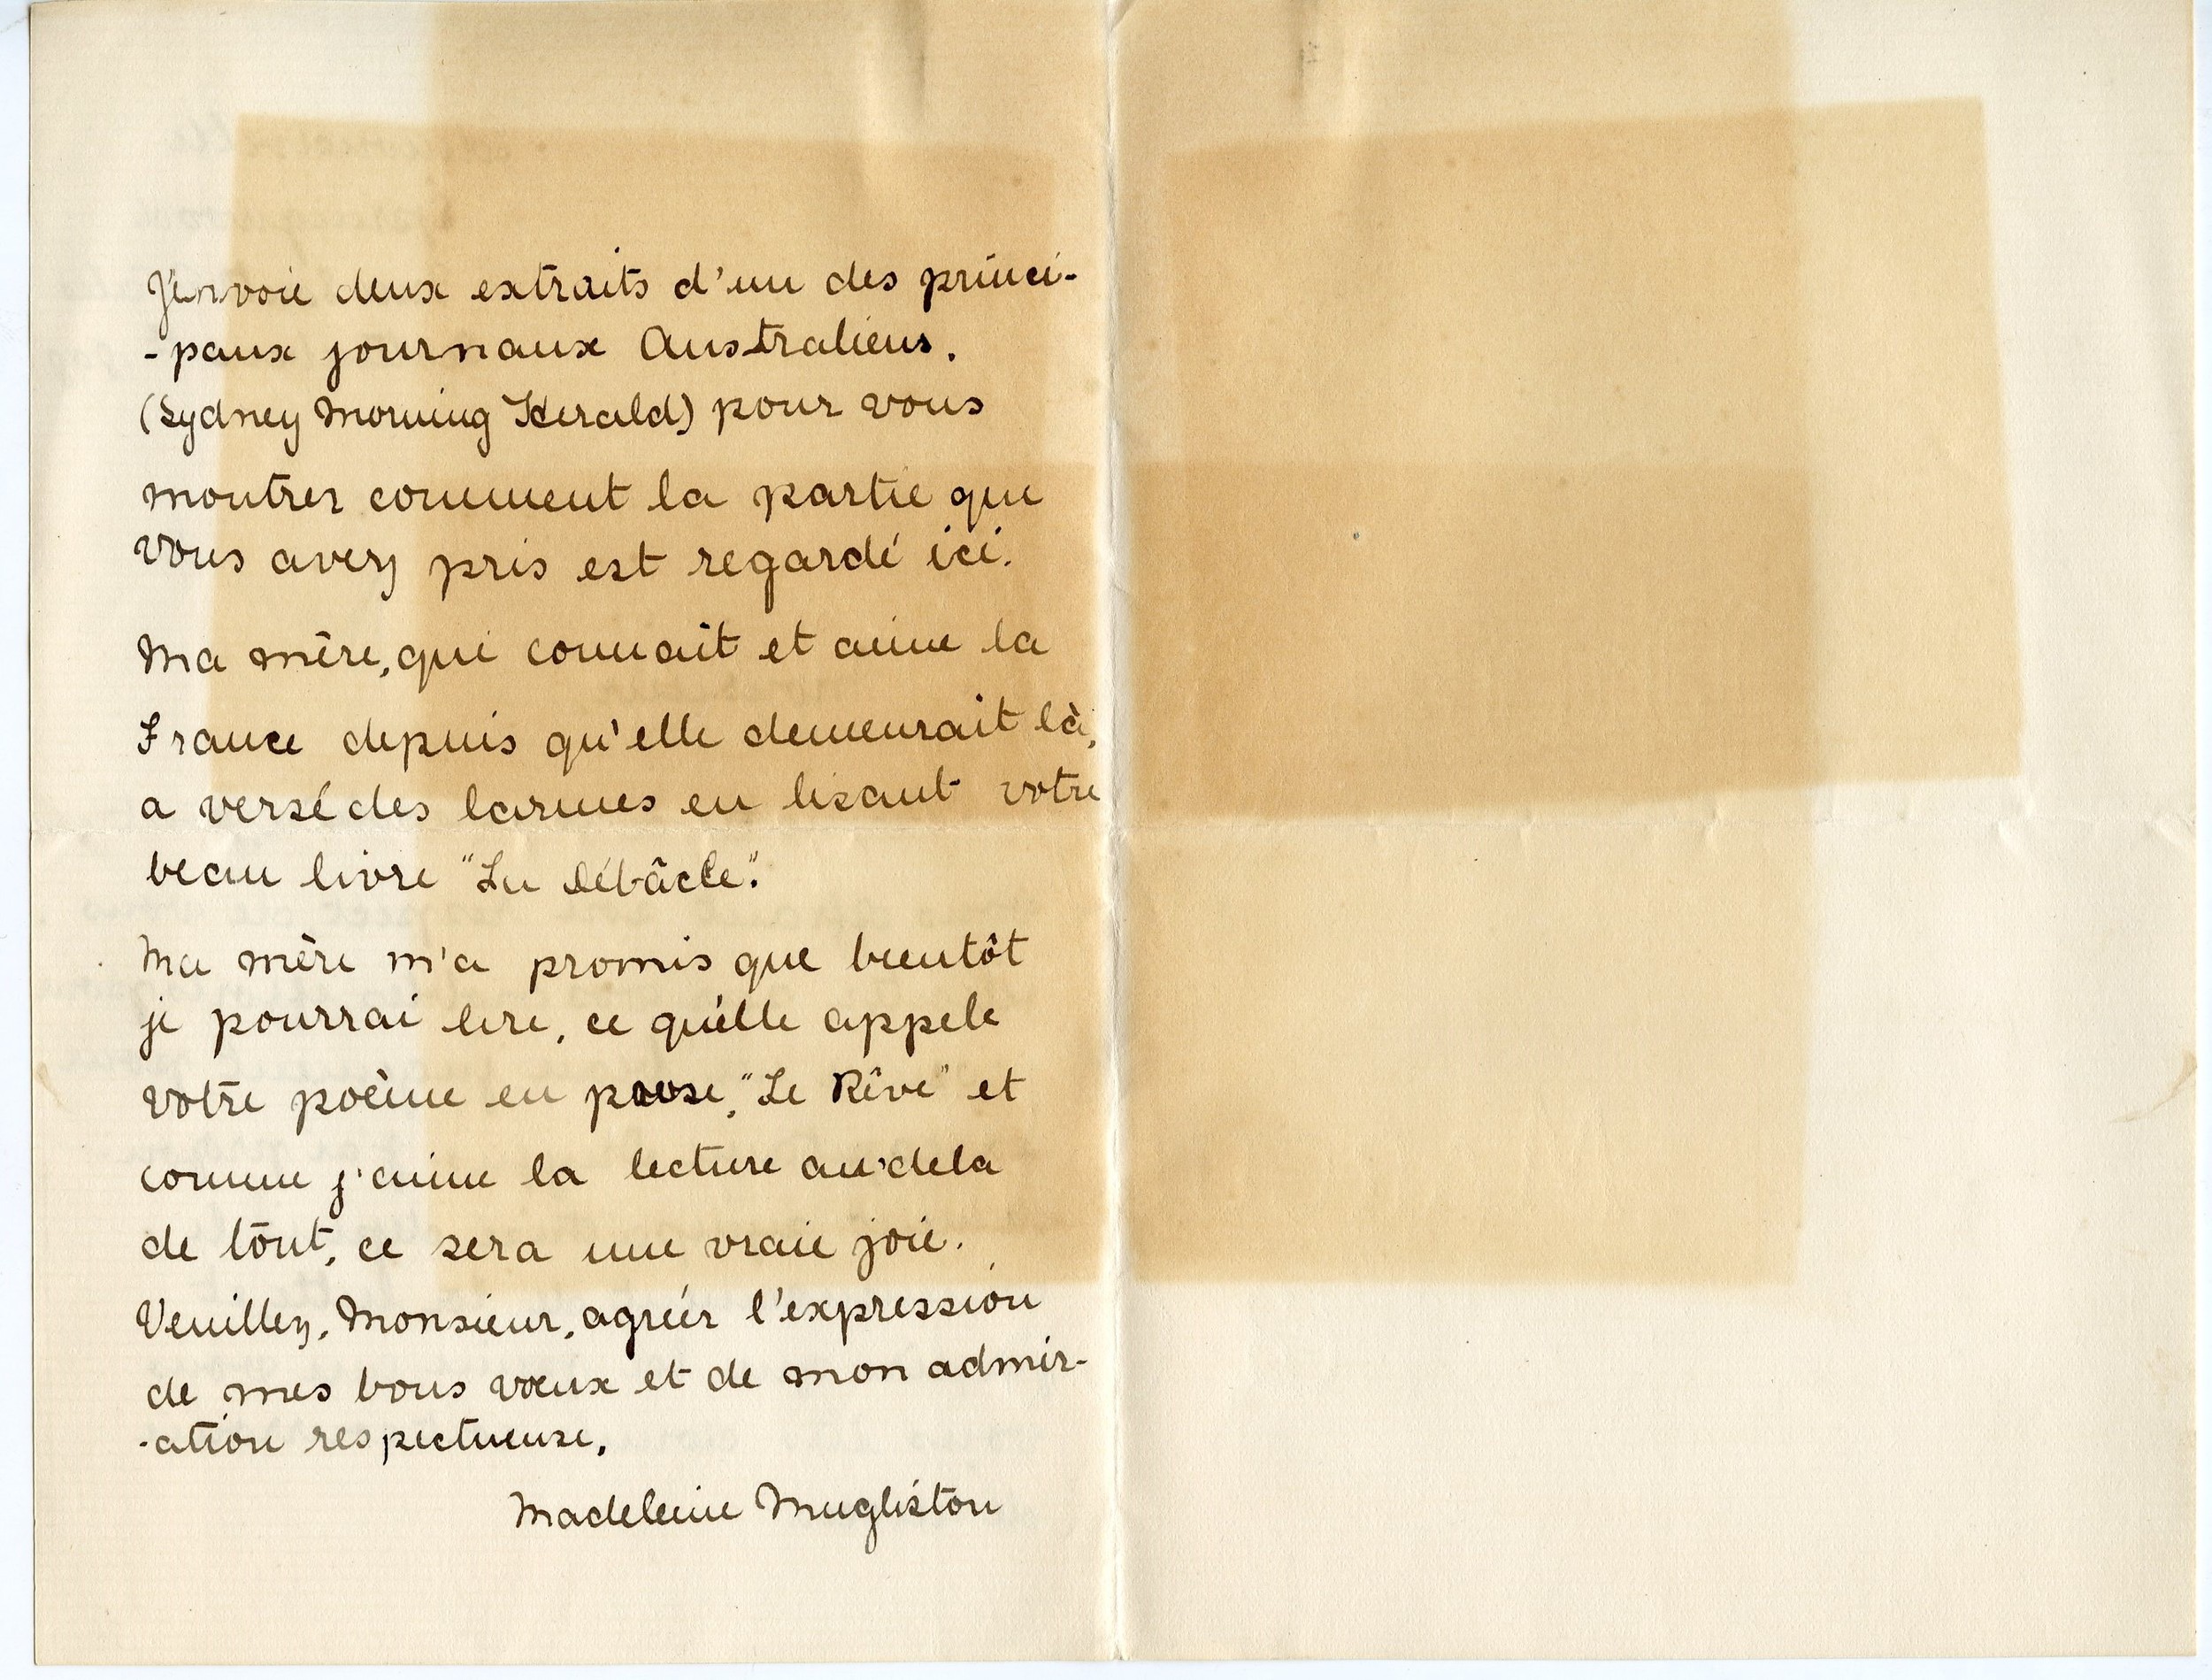 J'envoie deux extraits d'un des princi-
-paux journaux Australiens.
(Sydney Morning Herald) pour vous
montrer comment la partie que
vous avez pris est regardé ici.
Ma mère, qui connait et aime la
France depuis qu'elle demeurait là,
a versé des larmes en lisant votre
beau livre "La Débâcle".
Ma mère m'a promis que bientôt
je pourrai lire, ce qu'elle appele
votre poème en prose, "Le Rêve" et
comme j'aime la lecture au'dela
de tout, ce sera une vraie joie.
Veuillez, Monsieur, agréer l'expression
de mes bons vœux et de mon admir-
-ation respectueuse.
Madeleine Mugliston